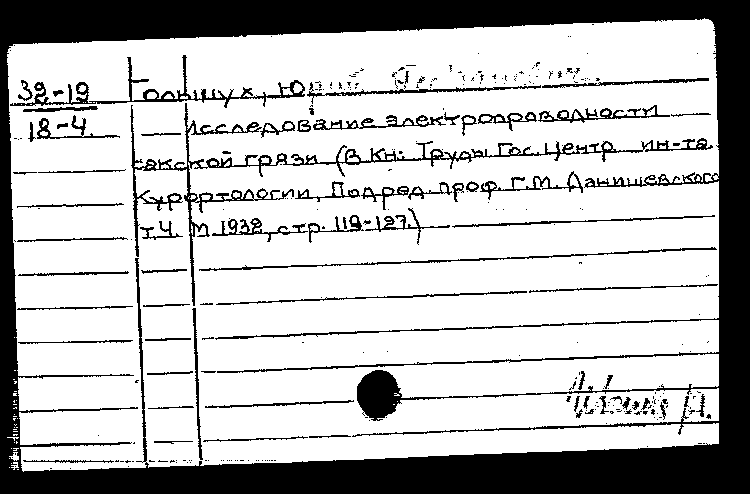 32-19
18-4.
Юрий
Исследование электропроводности
сакской грязи (В кн: Труды Гос. Центр ин-та
Курортологии, Под ред. проф. Г.М. Данишевского
т.4. М. 1932, стр. 119-127.)